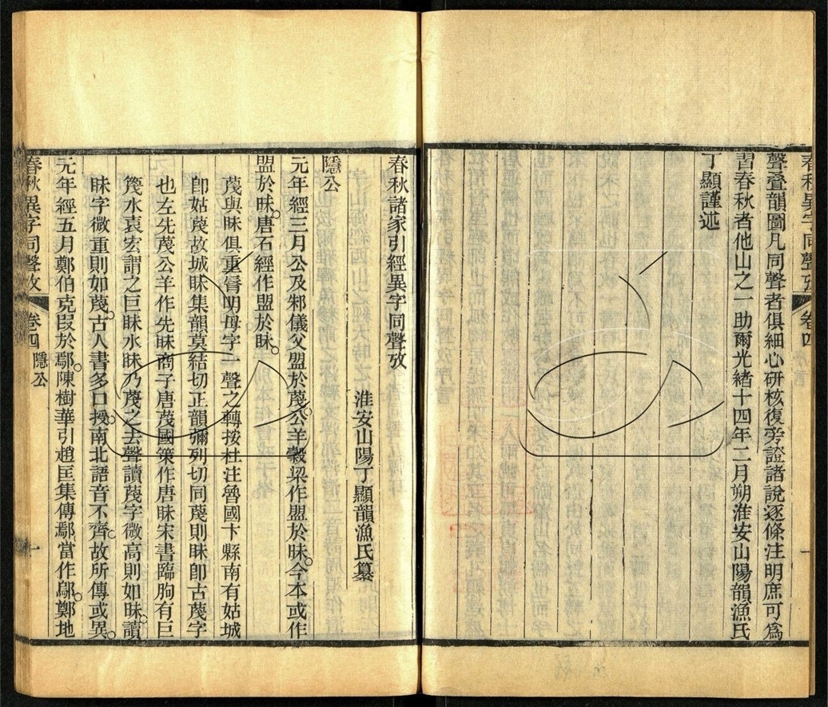 春秋異字同聲攷 卷四
聲叠韻圖凡同聲者俱細心研核復旁證諸說逐條注明庶可爲
習春秋者他山之一助爾光緒十四年二月朔淮安山陽韻漁氏
丁顯謹述
一
春秋諸家引經異字同聲攷
淮安山陽丁顯韻漁氏纂
隱公
元年經三月公及邾儀父盟於蔑公羊穀梁作盟於眛今本或作
盟於昧唐石經作盟於眛
蔑與眛俱重脣明母字一聲之轉按杜注魯國卞縣南有姑城
卽姑蔑故城眛集韻莫結切正韻彌列切同蔑則眛卽古蔑字
也左先蔑公羊作先眛商子唐蔑國策作唐眛宋書臨朐有巨
篾水袁宏謂之巨眛水眛乃蔑之去聲讀蔑字微高則如眛讀
眛字微重則如蔑古人書多口授南北語音不齊故所傳或異
元年經五月鄭伯克段於鄢陳樹華引趙匡集傳鄢當作鄔鄭地
春秋異字同聲攷 卷四 隱公
一